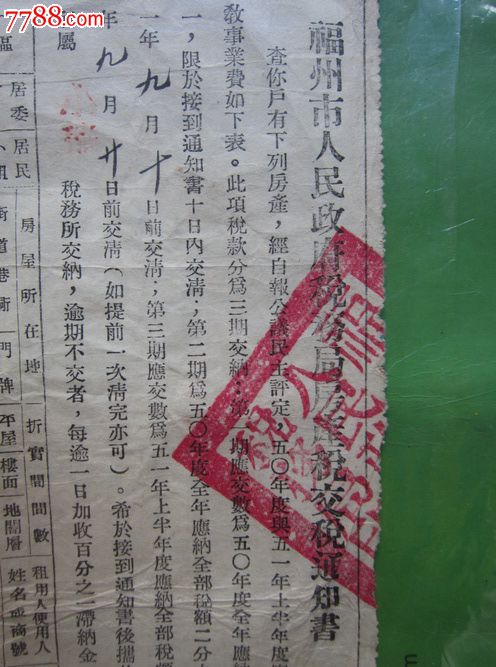 7788.com
福州市人民政府稅務局房產稅交稅通知書
查你戶有下列房產，經自報公議民主評定，五〇年度與五一年上半年度應
敎事業費如下表。此項稅款分爲三期交納：第一期應交數爲五〇年度全年應
一，限於接到通知書十日內交清；第二期爲五〇年度全年應納全部稅額二分
一年九月十日前交清；第三期應交數爲五一年上半年度應納全部稅
年九月廿日前交清（如提前一次清完亦可）。希於接到通知書後攜
屬 稅務所交納，逾期不交者，每逾一日加收百分之一滯納金
區
居委
居民
小組
房屋所在地
街道巷衖
門牌
折實間間數
平屋
樓面
地閣層
租用人使用人
姓名或商號